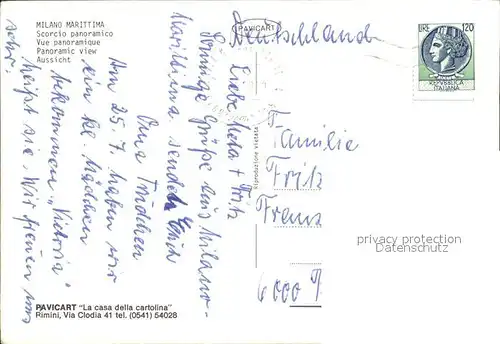 MILANO MARITTIMA
Scorcio panoramico
Vue panoramique
Panoramic view
Aussicht
PAVICART
Deutschland
LIRE 120
REPUBBLICA
ITALIANA
Liebe + Fritz
Sonnige Grüße aus Milano-
Marittima sendet Euch
Oma
Am 25.7. haben wir
ein kl. Mädchen
bekommen. "Victoria"
heißt sie. Wir freuen uns
sehr.
Riproduzione vietata
Familie
Fritz
Franz
6000
privacy protection
Datenschutz
PAVICART "La casa della cartolina"
Rimini, Via Clodia 41 tel. (0541) 54028